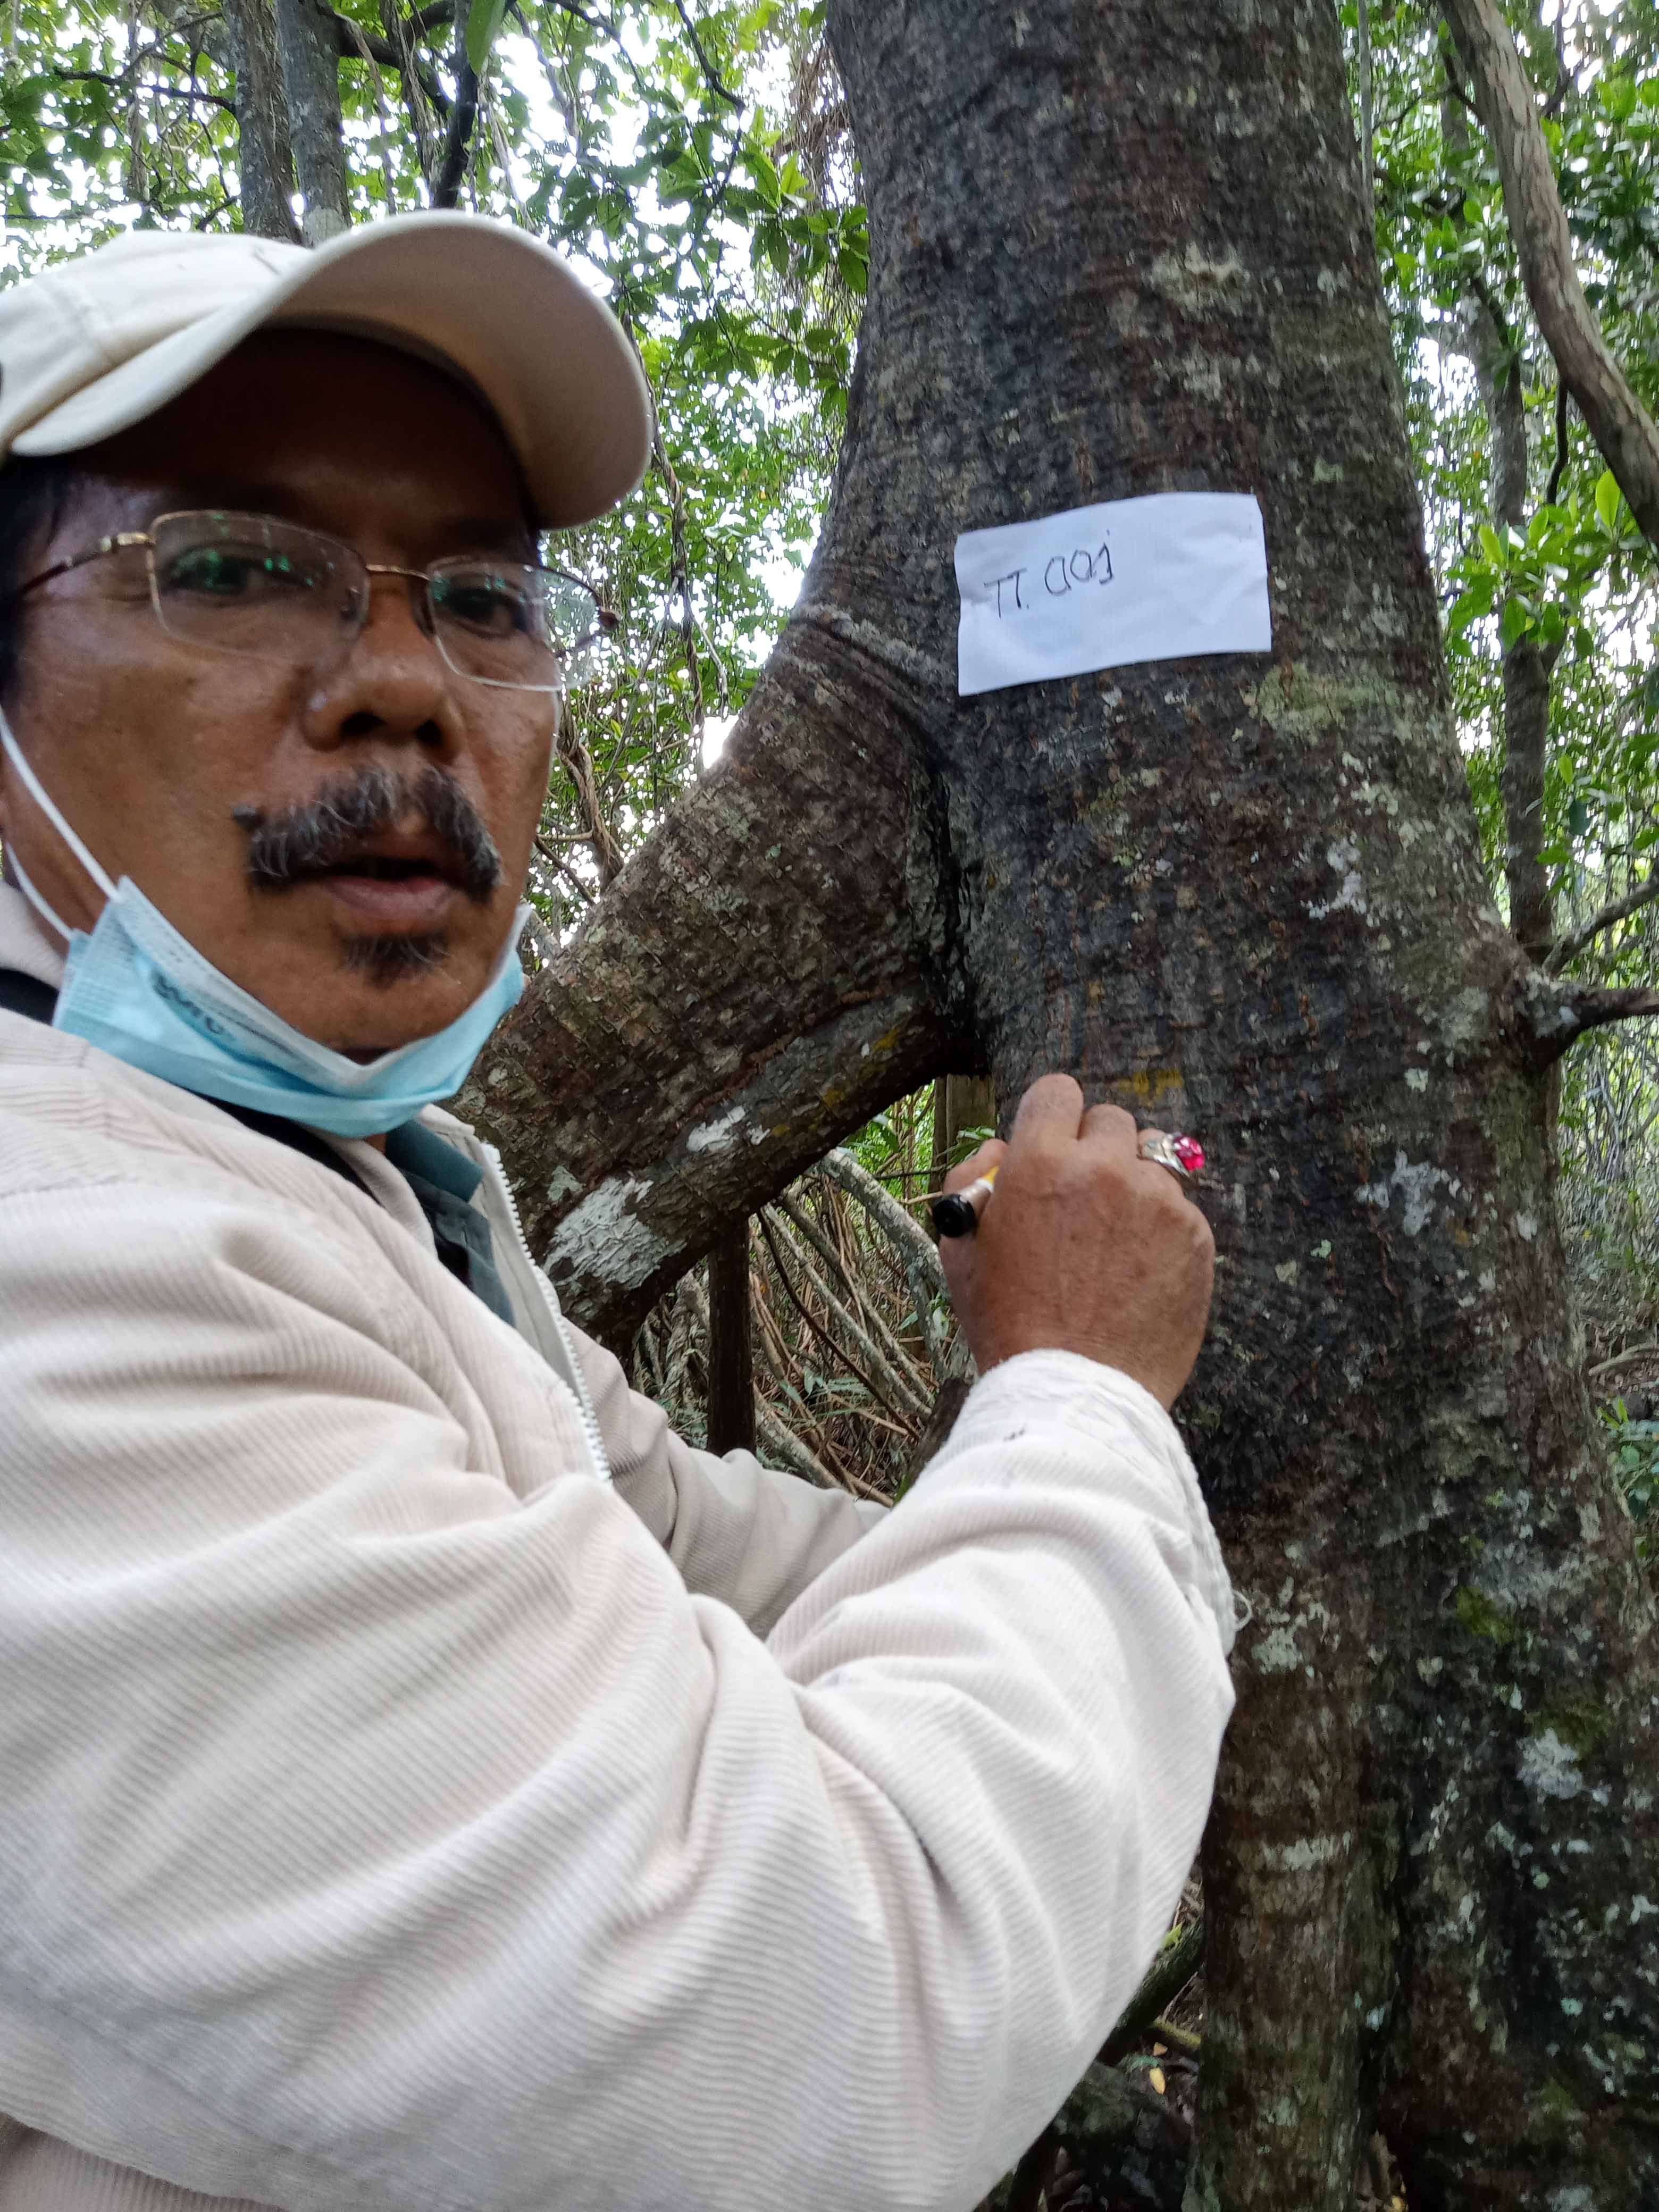 TT. 001